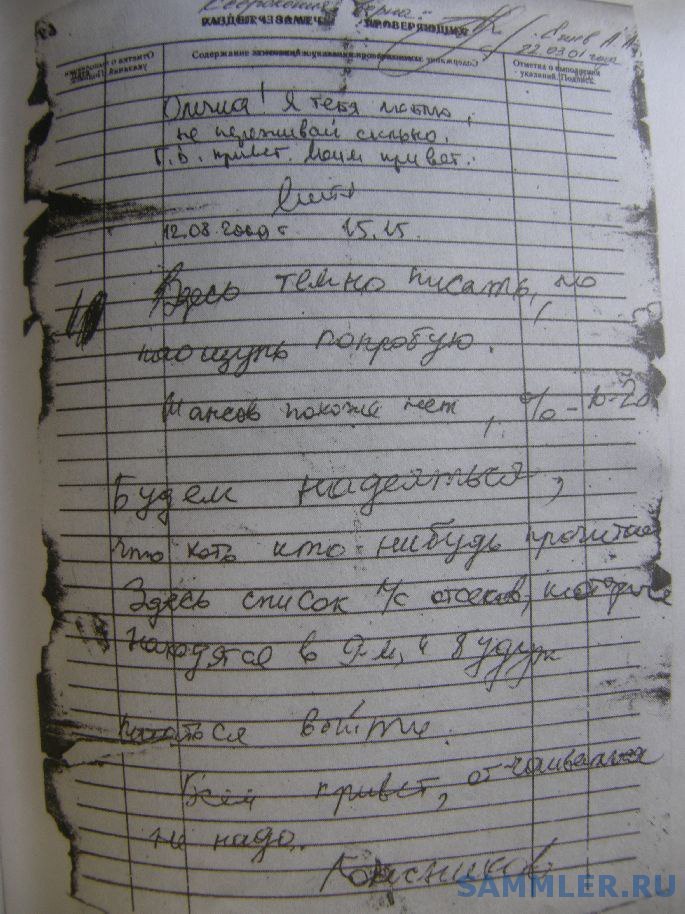 ПРОВЕРЯЮЩИХ
22.03.01
Содержание
Отметка о выполнении
указаний. Подпись.
Олечка! Я тебя люблю,
не переживай сильно.
Г.В. привет. Моим привет.
Митя
12.08.2000 г 15.15.
Здесь темно писать, но
наощупь попробую.
Шансов похоже нет, % – 10-20
Будем надеяться,
что хоть кто-нибудь прочитает
Здесь список л/с отсеков, которые
находятся в 9-м, и будут
пытаться выйти.
Всем привет, отчаиваться
не надо.
Колесников
SAMMLER.RU